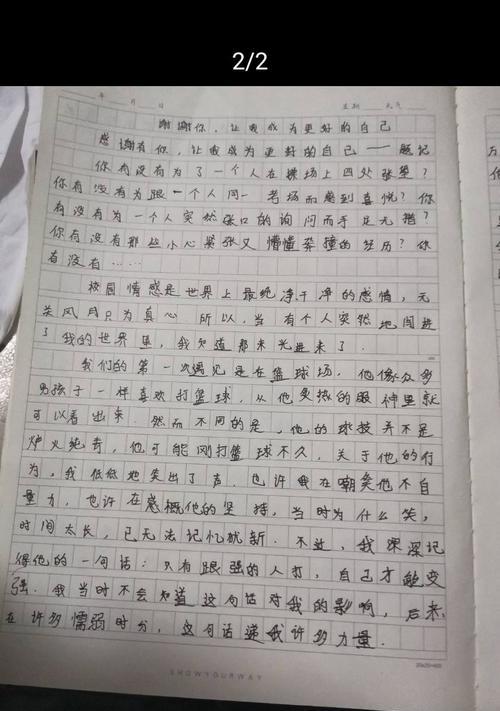 2/2
年 月 日 星期 天气
谢谢你，让我成为更好的自己
感谢有你，让我成为更好的自己——题记
你有没有为了一个人在操场上四处张望？
你有没有为跟一个人同一考场而感到喜悦？你
有没有为一个人突然张口的询问而手足无措？
你有没有那些小心紧张又懵懂莽撞的经历？你
有没有……
校园情感是世界上最纯净干净的感情，无
关风月只为真心 所以，当 有个人突然地闯进
了我的世界里，我知道那束光进来了．
我们的第一次遇见是在篮球场．他像众多
男孩子一样喜欢打篮球，从他炙热的眼神里就
可以看出来．然而不同的是，他的球技并不是
炉火纯青，他可能刚打篮球不久，关于他的行
为，我低低地笑出了声．也许我在嘲笑他不自
量力，也许在感概他的坚持，当时为什么笑，
时间太长，已无法记忆犹新．不过，我深深记
得他的一句话：只有跟强的人打，自己才能变
强．我当时不会知道这句话对我的影响，后来，
在许多懦弱时分，这句话递我许多力量．
SHOWYOURWAY
20x20=400